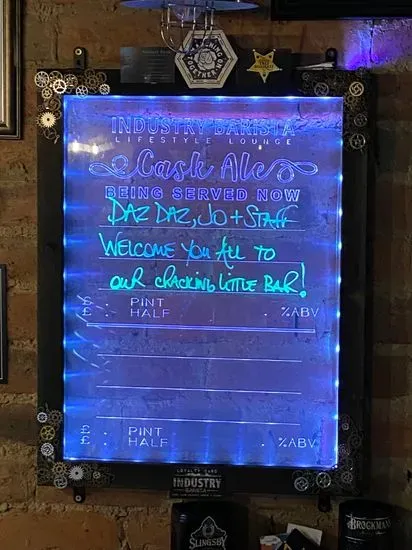 TOGETHER
INDUSTRY BARISTA
LIFESTYLE LOUNGE
Cask Ale
BEING SERVED NOW
DAZ DAZ, JO + STAFF
WELCOME YOU ALL TO
OUR CRACKING LITTLE BAR!
£ . PINT
£ . HALF . %ABV
£ . PINT
£ . HALF . %ABV
LOYALTY CARD
INDUSTRY
BARISTA
SLINGSBY
BROCKMAN